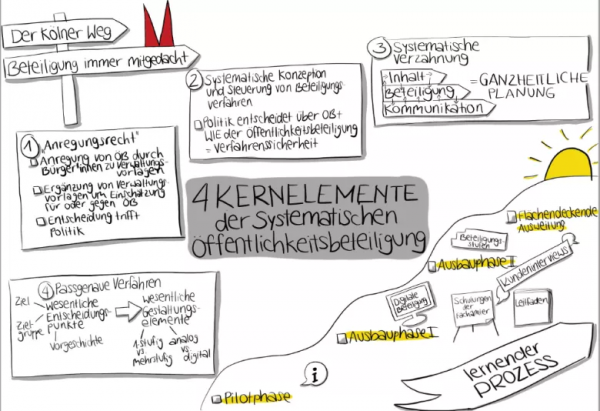 Der Kölner Weg
Beteiligung immer mitgedacht
1 "Anregungsrecht"
Anregung von ÖB durch
Bürger*innen zu Verwaltungs-
vorlagen
Ergänzung von Verwaltungs-
vorlagen um Einschätzung
für oder gegen ÖB
Entscheidung trifft
Politik
2 Systematische Konzeption
und Steuerung von Beteiligungs
verfahren
Politik entscheidet über OB+
WIE der Öffentlichkeitsbeteiligung
= Verfahrenssicherheit
3 Systematische
Verzahnung
Inhalt
Beteiligung
Kommunikation
= GANZHEITLICHE
PLANUNG
4 KERNELEMENTE
der Systematischen
Öffentlichkeitsbeteiligung
4 Passgenaue Verfahren
Ziel
Zielgruppe
wesentliche
Entscheidungs-
punkte
Vorgeschichte
wesentliche
Gestaltungs-
elemente
1-stufig
vs
mehrstufig
analog
vs
digital
Flächendeckende
Ausweitung
Beteiligungs-
Ausbauphase II
Kundeninterviews
Digitale
Beteiligung
Schulungen
der
Fachämter
Leitfaden
Ausbauphase I
i
Pilotphase
lernender
PROZESS